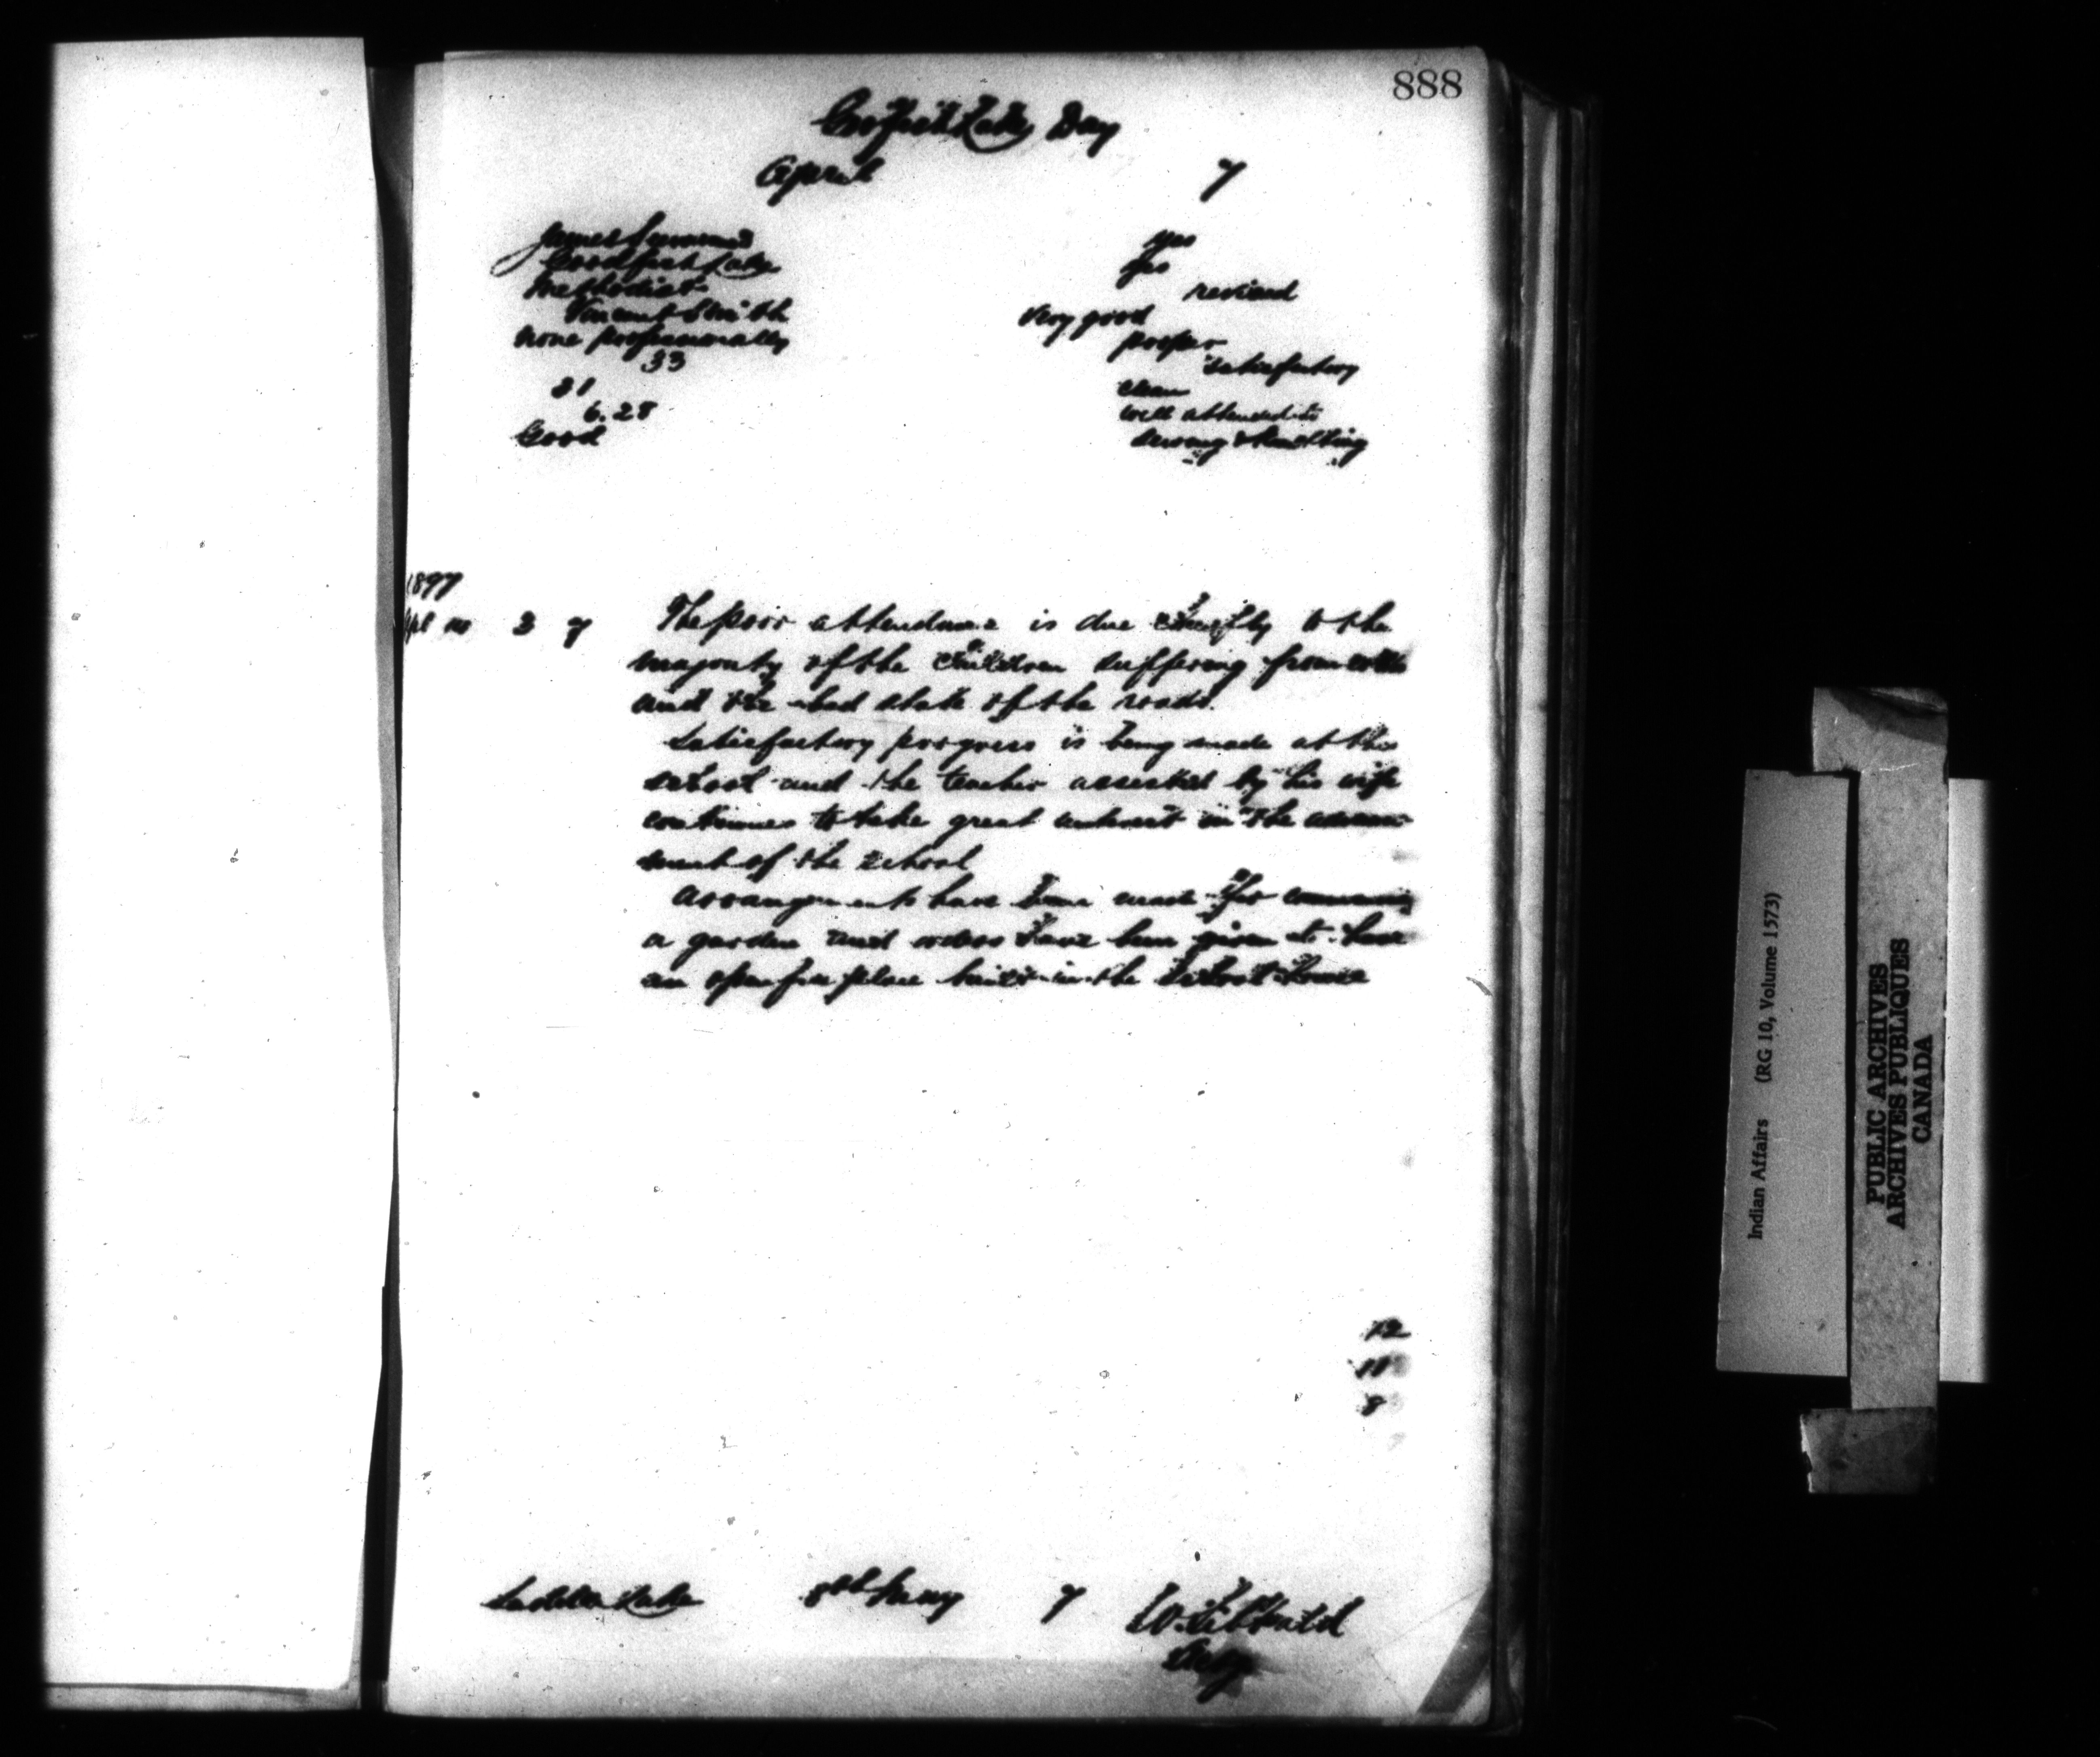 888
Goodfish Lake Day
April 7
James Seenum's
Goodfish Lake
Methodist
Vincent Smith
none professionally
33
31
6.28
Good
yes
yes
revised
very good
proper
satisfactory
clean
well attended to
sewing & knitting
1897
Apl 3 7 The poor attendance is due chiefly to the
majority of the children suffering from colds
and the bad state of the roads.
Satisfactory progress is being made at this
school and the teacher assisted by his wife
continues to take great interest in the advance
ment of the school
Arrangements have been made for commencing
a garden and orders have been given to have
an open fire place built in the School House
12
11
8
Saddle Lake 8th May 7 W. Sibbald
Indian Affairs (RG 10, Volume 1573)
PUBLIC ARCHIVES
ARCHIVES PUBLIQUES
CANADA